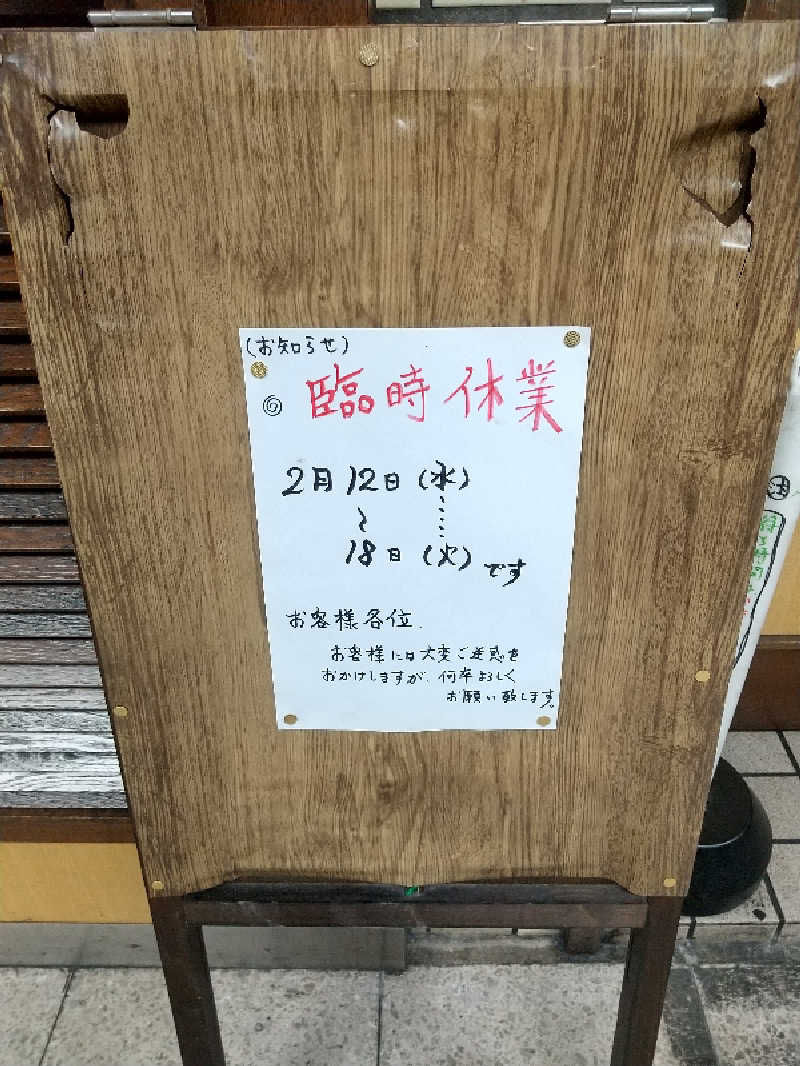 (お知らせ)
◎ 臨時休業
2月12日(水)
〜
18日(火)です
お客様各位.
お客様には大変ご迷惑を
おかけしますが、何卒よろしく
お願い致します。